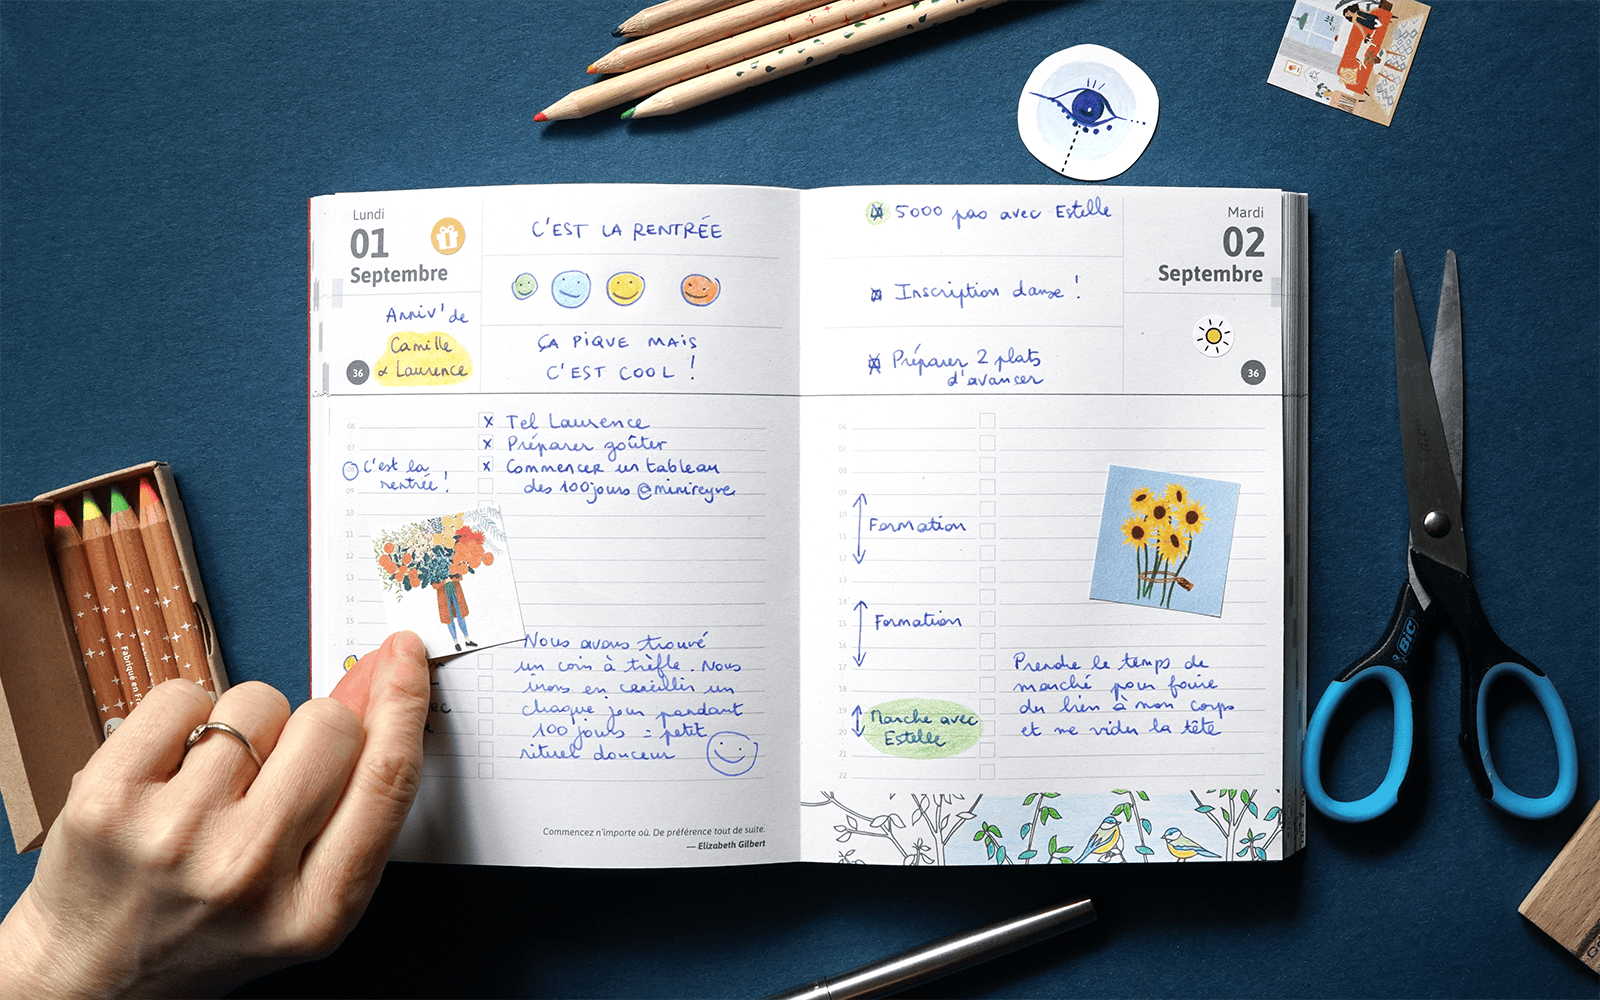 Lundi
01
Septembre
Anniv' de
Camille
& Laurence
36
C'EST LA RENTRÉE
ÇA PIQUE MAIS
C'EST COOL !
06
07
08
09
10
11
12
13
14
15
16
C'est la
rentrée !
x Tel Laurence
x Préparer goûter
x Commencer un tableau
des 100 jours @mimireyve
Nous avons trouvé
un coin à trèfle. Nous
irons en cueillir un
chaque jour pendant
100 jours = petit
rituel douceur
Commencez n'importe où. De préférence tout de suite.
— Elizabeth Gilbert
5000 pas avec Estelle
Inscription danse !
Préparer 2 plats
d'avancer
Mardi
02
Septembre
36
06
07
08
09
10
11
12
13
14
15
16
17
18
19
20
21
22
Formation
Formation
Marche avec
Estelle
Prendre le temps de
marché pour faire
du bien à mon corps
et me vider la tête
Fabriqué en
BIC